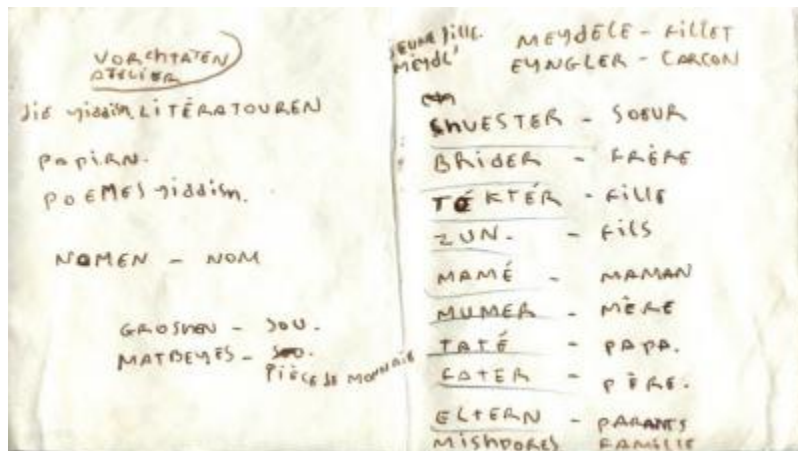 VORCHTATEN
ATELIER
DIE yiddish LITÉRATOUREN
PAPIRN.
POEMES yiddish.
NOMEN - NOM
GROSHEN - SOU.
MATBEYES -
PIÈCE DE MONNAIE
JEUNE FILLE.
MEYDL'
MEYDELE - FILLET
EYNGLER - GARCON
SHVESTER - SOEUR
BRIDER - FRÈRE
TÉKTÉR - FILLE
ZUN. - FILS
MAMÉ - MAMAN
MUMER - MÈRE
TATÉ - PAPA.
FATER - PÈRE.
ELTERN - PARANTS
MISHPORES FAMILLE